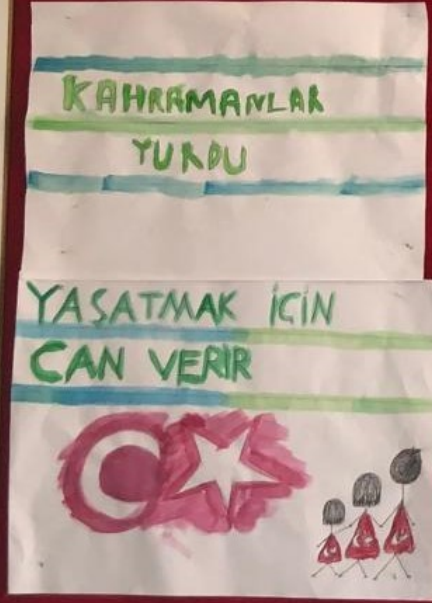 KAHRAMANLAR
YURDU
YAŞATMAK İÇİN
CAN VERİR